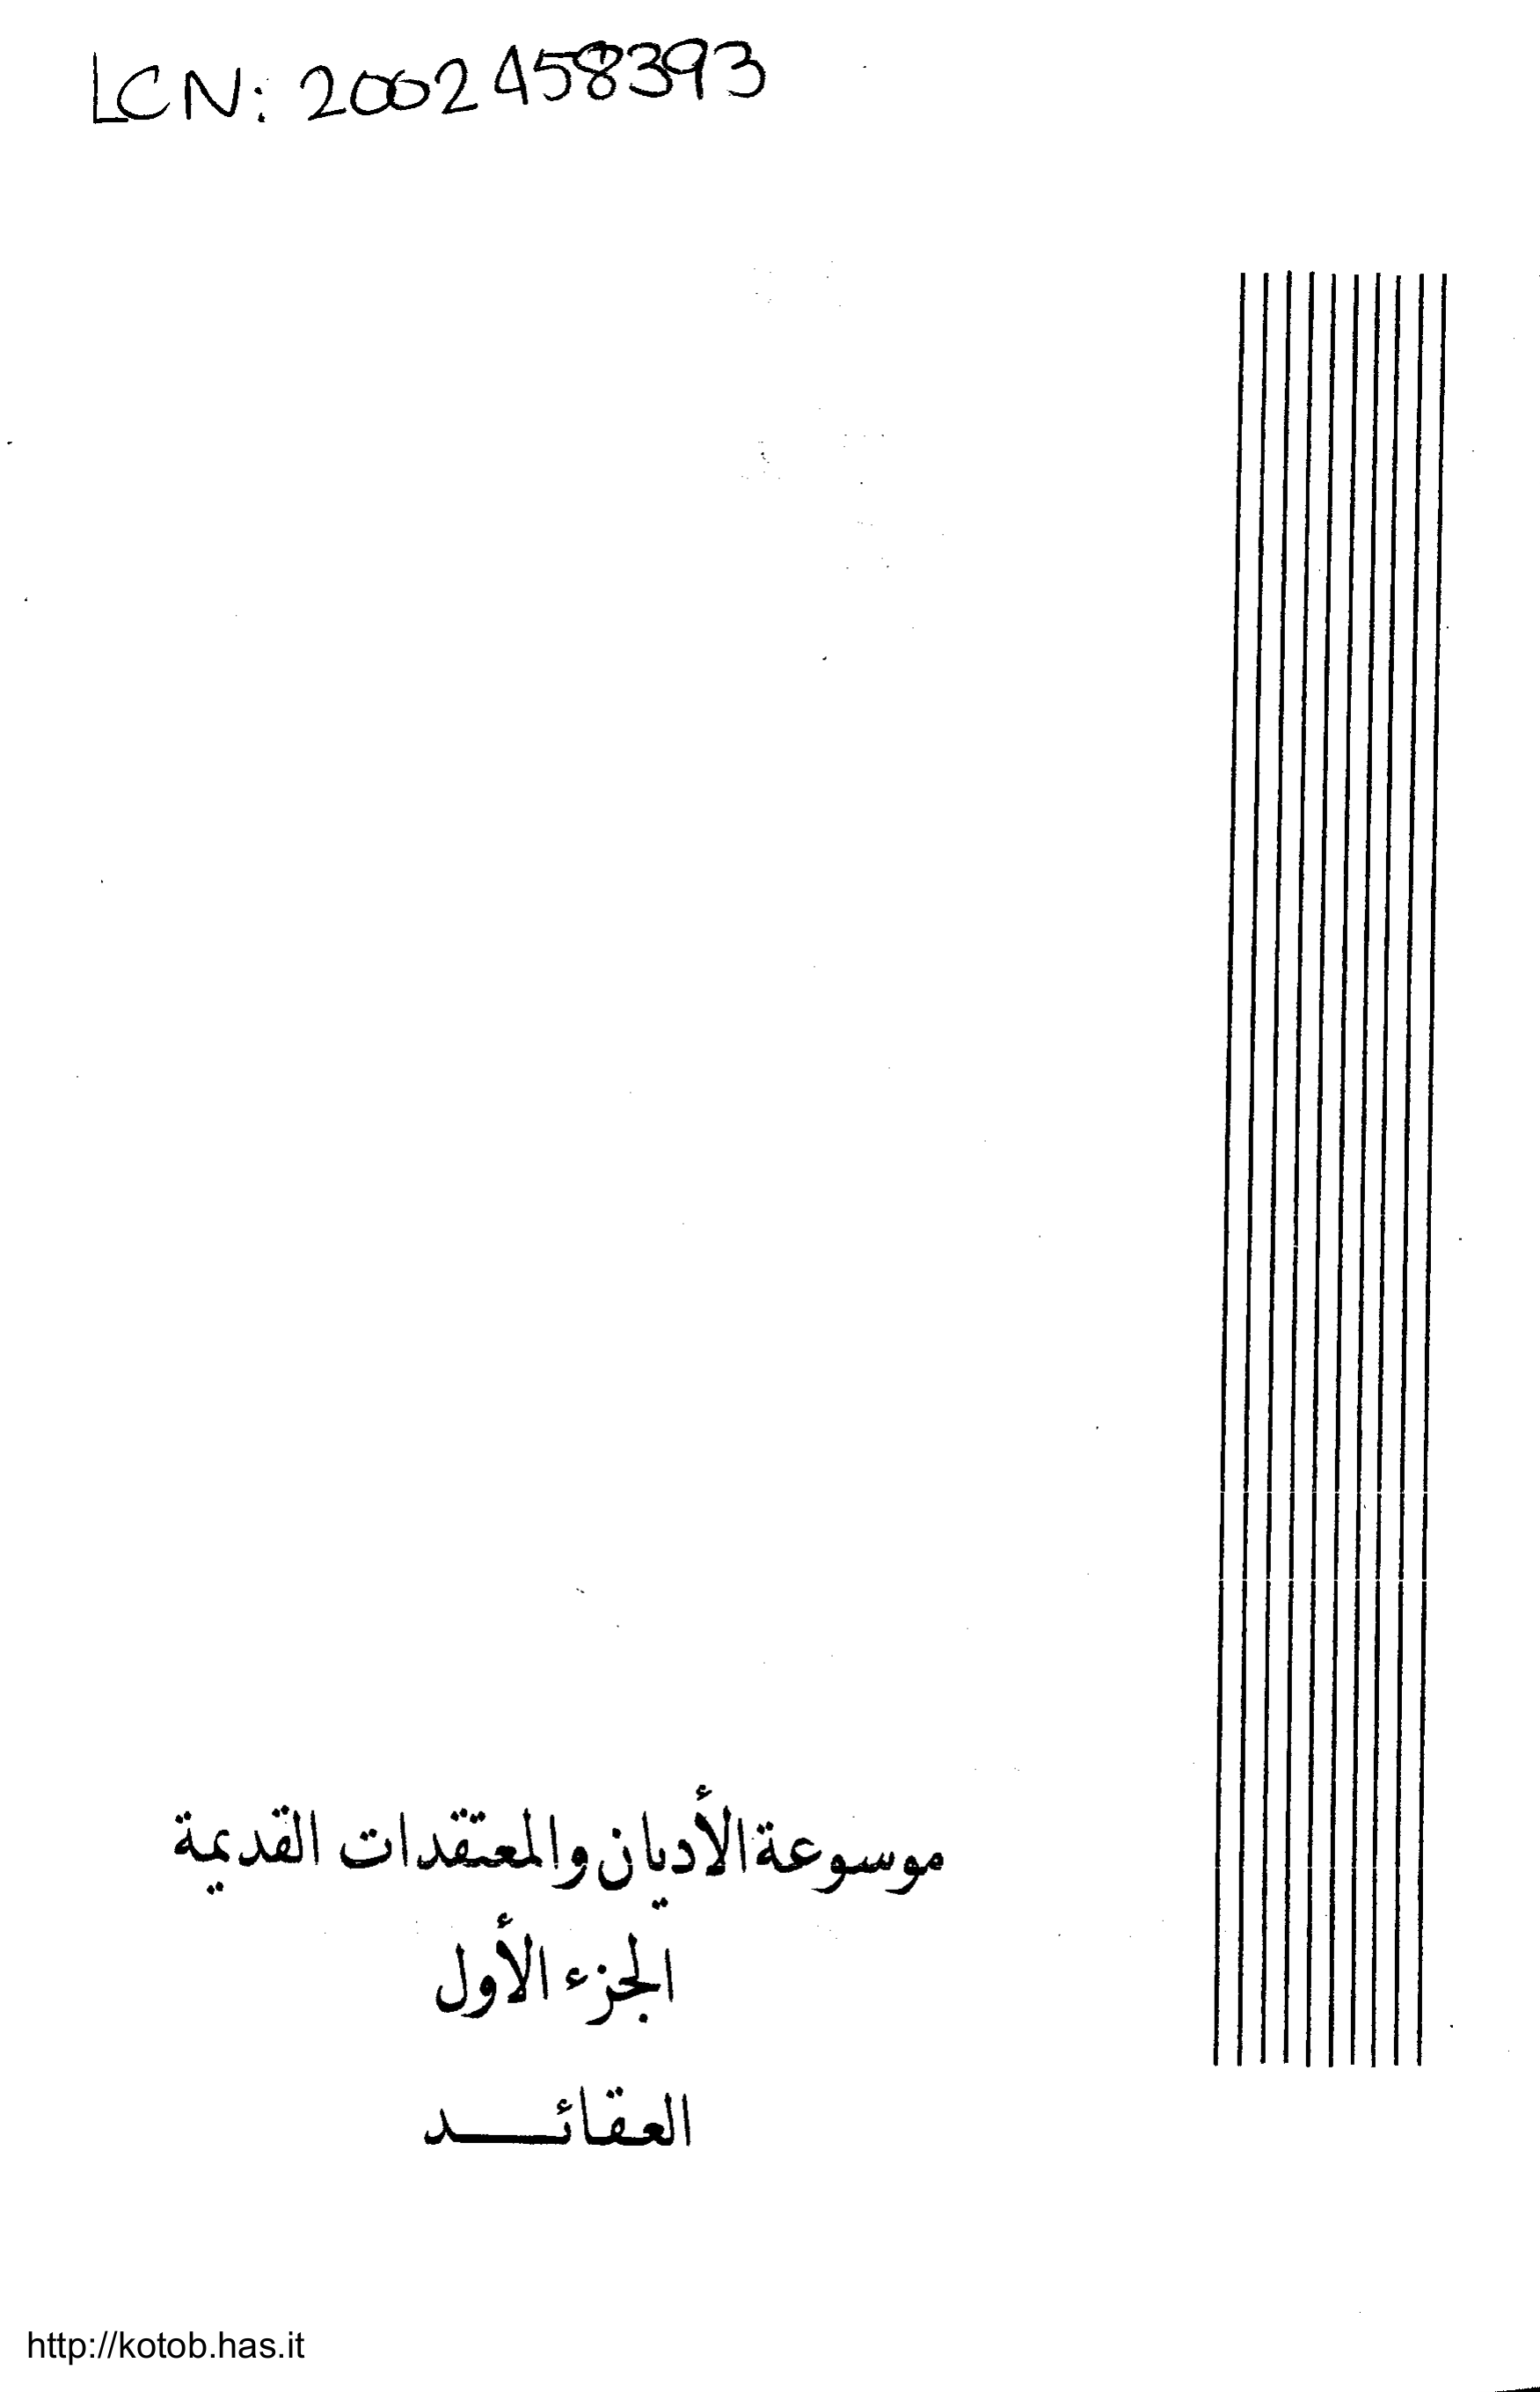 LCN: 2002458393
موسوعة الأديان والمعتقدات القديمة
الجزء الأول
العقائـــد
http://kotob.has.it